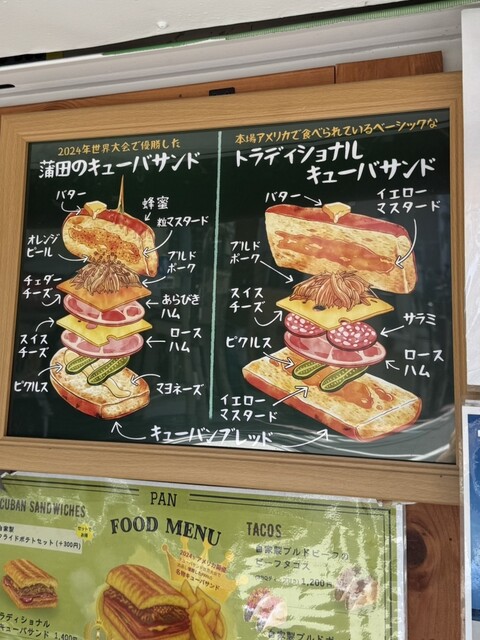 2024年世界大会で優勝した
蒲田のキューバサンド
バター
蜂蜜
粒マスタード
オレンジ
ピール
プルド
ポーク
チェダー
チーズ
あらびき
ハム
スイス
チーズ
ロース
ハム
ピクルス
マヨネーズ
本場アメリカで食べられているベーシックな
トラディショナル
キューバサンド
バター
イエロー
マスタード
プルド
ポーク
スイス
チーズ
サラミ
ピクルス
ロース
ハム
イエロー
マスタード
キューバンブレッド
CUBAN SANDWICHES
PAN
FOOD MENU
TACOS
自家製
フライドポテトセット (+300円)
自家製プルドビーフの
ビーフタコス
1,200円
ラディショナル
キューバサンド 1,400
自家製プルドポ